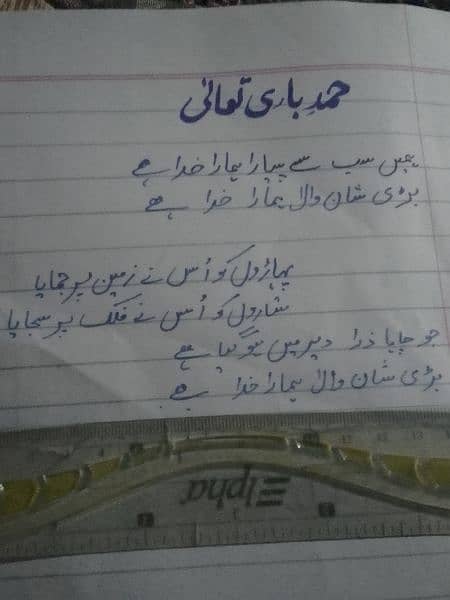 حمدِ باری تعالیٰ
ہمیں سب سے پیارا ہمارا خدا ہے
بڑی شان والا ہمارا خدا ہے
پہاڑوں کو اُس نے زمین پر جمایا
ستاروں کو اُس نے فلک پر سجایا
جو چاہا ذرا دیر میں ہو گیا ہے
بڑی شان والا ہمارا خدا ہے
Elpha
11 12 13